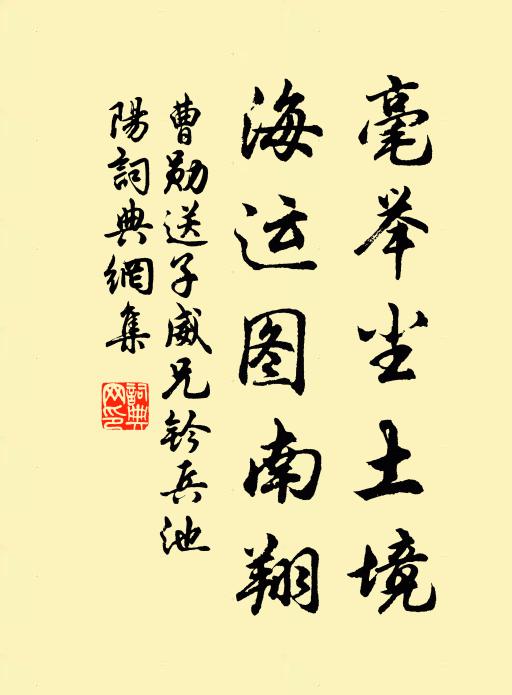 毫举尘土境
海运图南翔
曹勋送子威兄钤兵池
陽詞典網集
詞典
网印